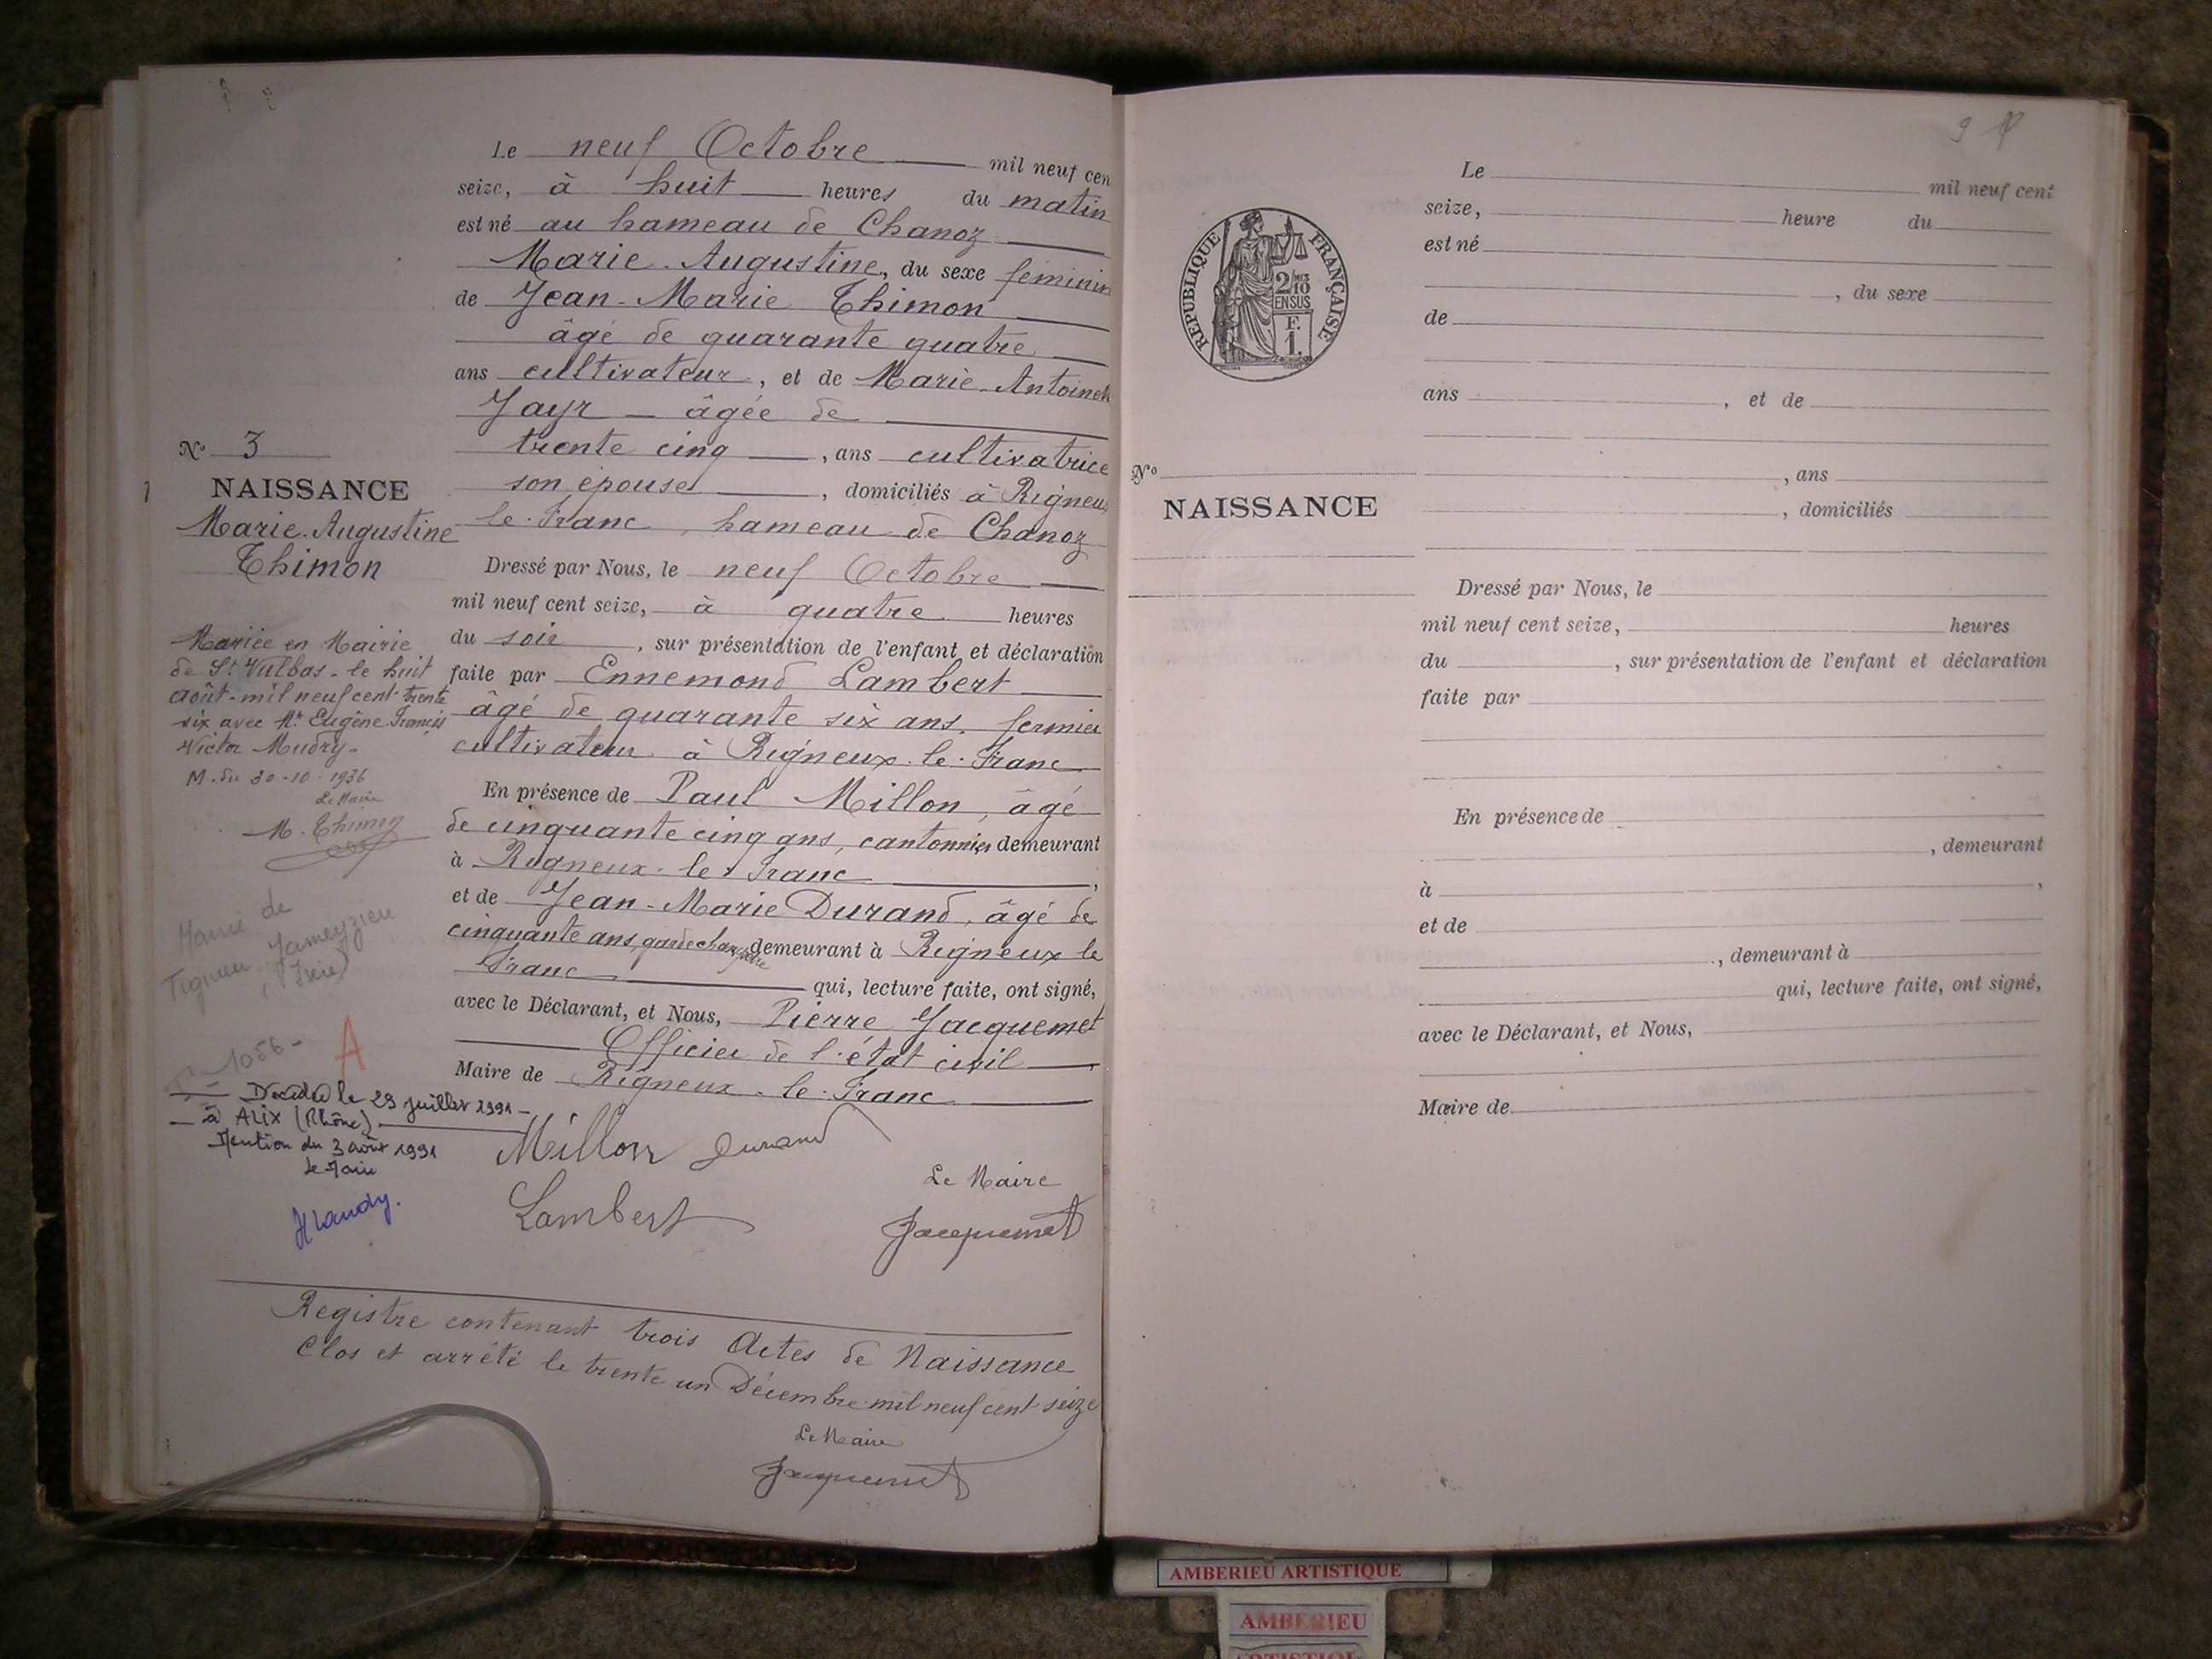 Le neuf Octobre mil neuf cen
seize, à huit heures du matin
est né au hameau de Chanoz
Marie Augustine, du sexe féminin
de Jean-Marie Thimon
âgé de quarante quatre
ans cultivateur, et de Marie-Antoinett
Jayr - âgée de
trente cinq, ans cultivatrice
son épouse, domiciliés à Rigneux
le-Franc, hameau de Chanoz
Dressé par Nous, le neuf Octobre
mil neuf cent seize, à quatre heures
du soir, sur présentation de l'enfant et déclaration
faite par Ennemond Lambert
âgé de quarante six ans, fermier
cultivateur à Rigneux-le-Franc
En présence de Paul Millon, âgé
de cinquante cinq ans, cantonnier demeurant
à Rigneux-le-Franc,
et de Jean-Marie Durand, âgé de
cinquante ans, garde champêtre demeurant à Rigneux le
Franc qui, lecture faite, ont signé,
avec le Déclarant, et Nous, Pierre Jacquemet
Officier de l'état civil
Maire de Rigneux-le-Franc
Millon Durand
Lambert
Le Maire
Jacquemet
Nº 3
NAISSANCE
Marie-Augustine
Thimon
Mariée en Mairie
de St Vulbas - le huit
août - mil neuf cent trente
six avec Mr Eugène Francis
Victor Mudry -
M. du 30-10-1936
Le Maire
M. Thimon
Mairie de
Tignieu Jameyzieu
(Isère)
1056 -
A
Décédée le 29 juillet 1991 -
à ALIX (Rhône)
Mention du 3 août 1991
Le Maire
Registre contenant trois Actes de Naissance
Clos et arrêté le trente un Décembre mil neuf cent seize
Le Maire
Jacquemet
9
REPUBLIQUE FRANÇAISE
2/10
EN SUS
F.
1.
Le mil neuf cent
seize, heure du
est né
, du sexe
de
ans , et de
, ans
, domiciliés
Nº
NAISSANCE
Dressé par Nous, le
mil neuf cent seize, heures
du , sur présentation de l'enfant et déclaration
faite par
En présence de
, demeurant
à ,
et de
, demeurant à
qui, lecture faite, ont signé,
avec le Déclarant, et Nous,
Maire de
AMBERIEU ARTISTIQUE
AMBERIEU
ARTISTIQUE